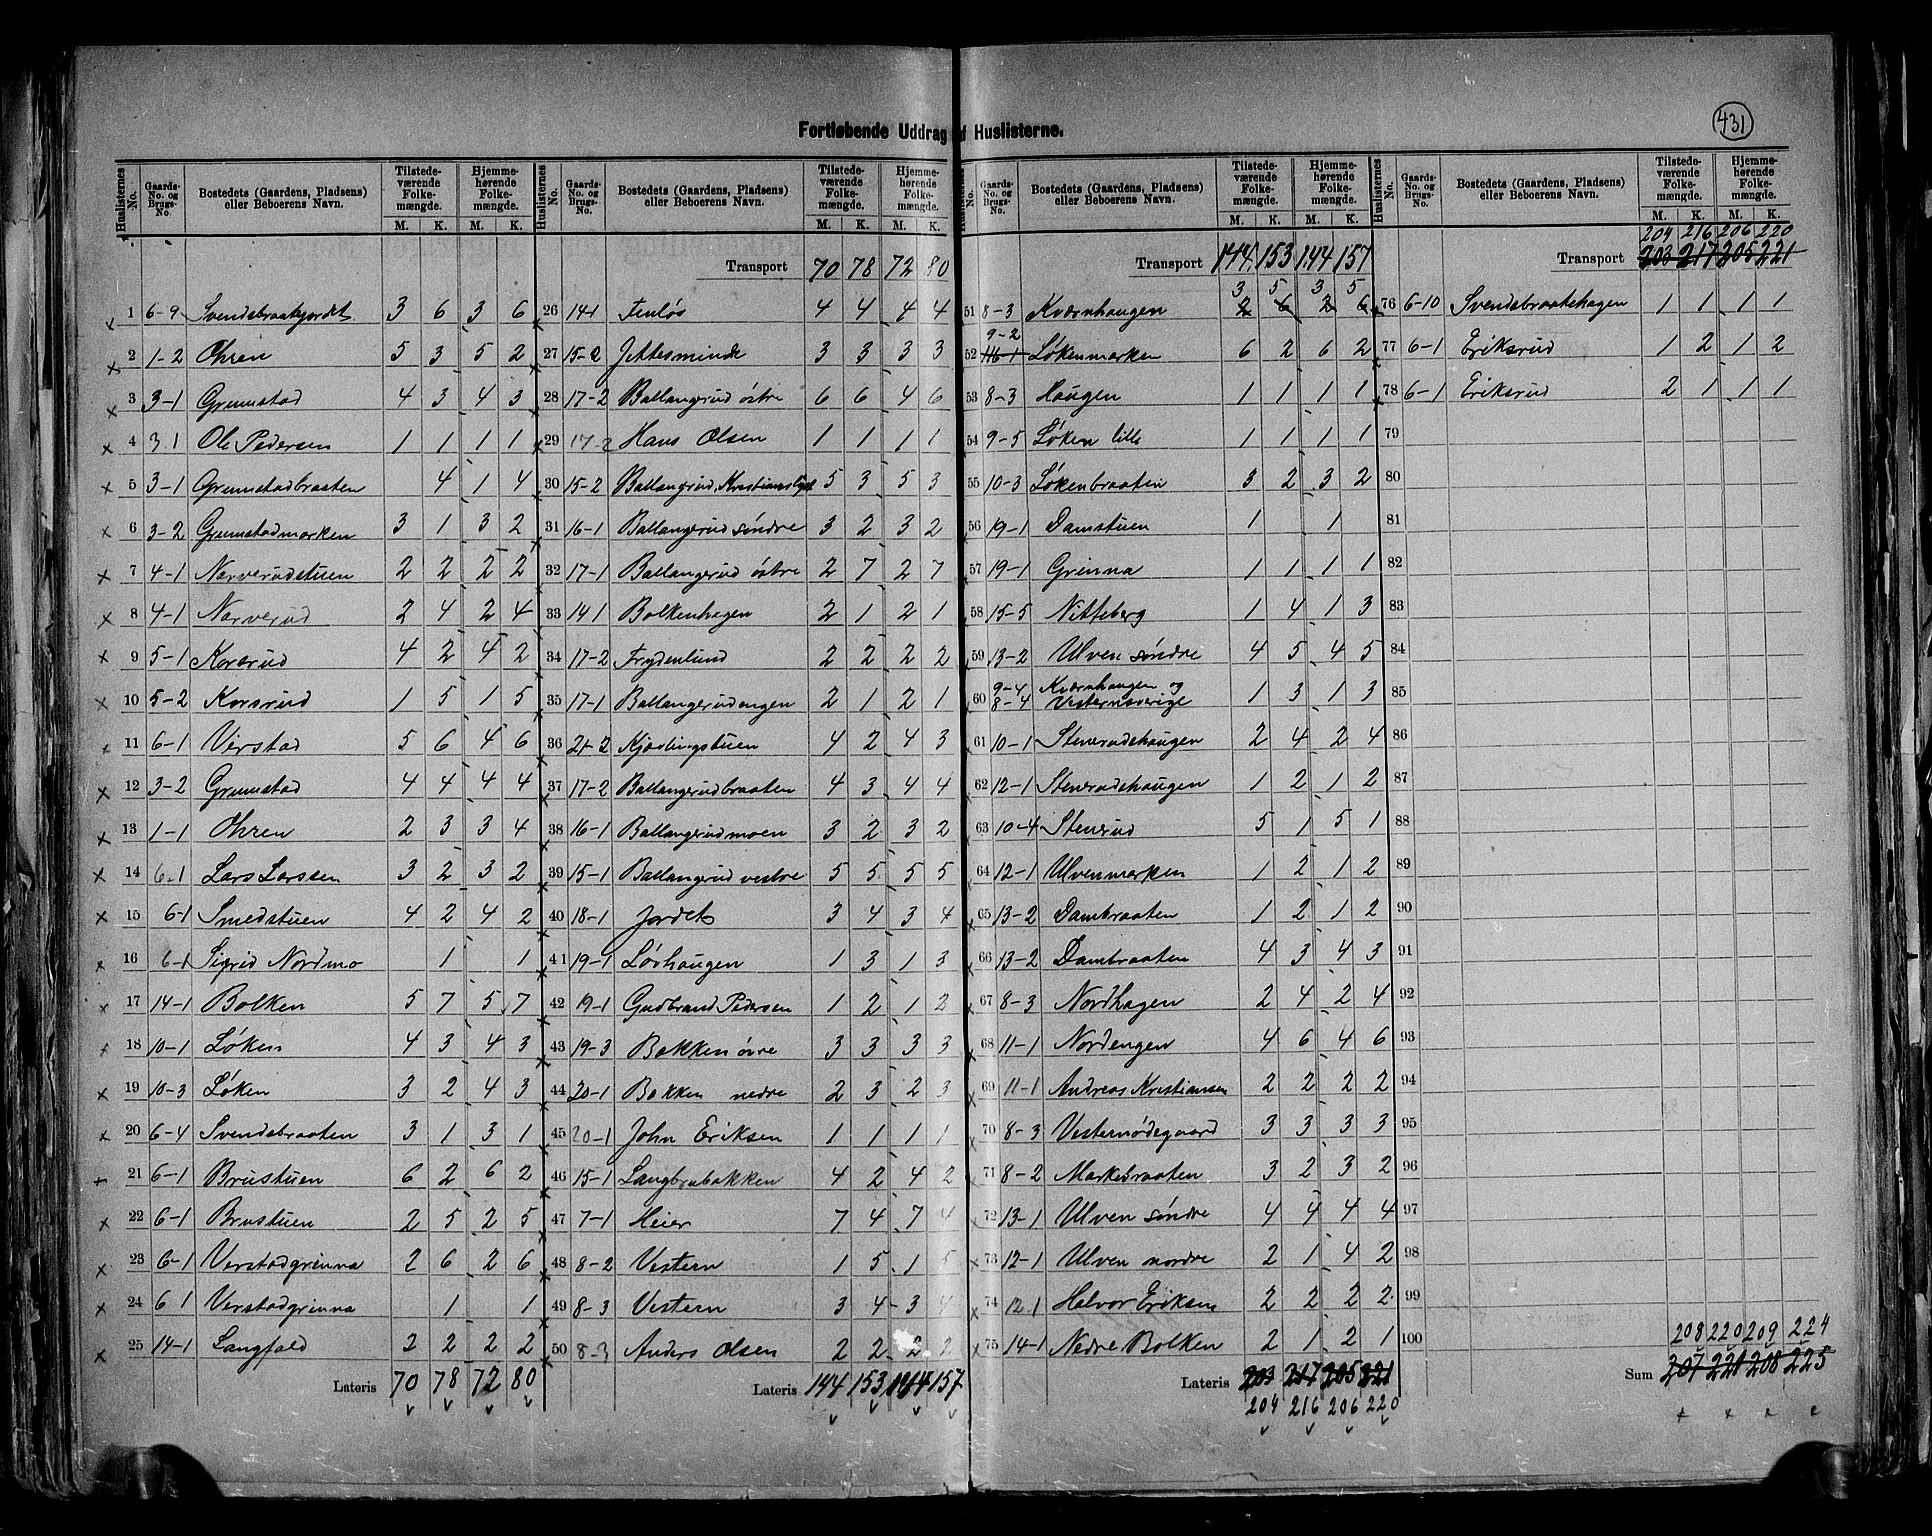 431
Fortløbende Uddrag af Huslisterne.
Huslisternes No. | Gaards-No. og Brugs-No. | Bostedets (Gaardens, Pladsens) eller Beboerens Navn. | Tilstedeværende Folkemængde. M. K. | Hjemmehørende Folkemængde. M. K.
1 6-9 Svendsbraatejordet 3 6 3 6
2 1-2 Ohren 5 3 5 2
3 3-1 Grumstad 4 3 4 3
4 3-1 Ole Pedersen 1 1 1 1
5 3-1 Grumstadbraaten 4 1 4
6 3-2 Grumstadmarken 3 1 3 2
7 4-1 Narverudstuen 2 2 2 2
8 4-1 Narverud 2 4 2 4
9 5-1 Korsrud 4 2 4 2
10 5-2 Korsrud 1 5 1 5
11 6-1 Verstad 5 6 4 6
12 3-2 Grumstad 4 4 4 4
13 1-1 Ohren 2 3 3 4
14 6-1 Lars Larssen 3 2 3 2
15 6-1 Smedstuen 4 2 4 2
16 6-1 Sigrid Nordmo 1 1
17 14-1 Bolken 5 7 5 7
18 10-1 Løken 4 3 4 3
19 10-3 Løken 3 2 4 3
20 6-4 Svendsbraaten 3 1 3 1
21 6-1 Brustuen 6 2 6 2
22 6-1 Brustuen 2 5 2 5
23 6-1 Verstadgrinna 2 6 2 6
24 6-1 Verstadgrinna 1 1
25 14-1 Langfald 2 2 2 2
Lateris 70 78 72 80
Transport 70 78 72 80
26 14-1 Finløs 4 4 4 4
27 15-2 Jettesminde 3 3 3 3
28 17-2 Ballangrud østre 6 6 4 6
29 17-2 Hans Olsen 1 1 1 1
30 15-2 Ballangrud, Kristianslyst 5 3 5 3
31 16-1 Ballangerud søndre 3 2 3 2
32 17-1 Ballangerud østre 2 7 2 7
33 14-1 Bolkenhagen 2 1 2 1
34 17-2 Frydenlund 2 2 2 2
35 17-1 Ballangerudengen 2 1 2 1
36 21-2 Kjærlingstuen 4 2 4 3
37 17-2 Ballangerudbraaten 4 3 4 4
38 16-1 Ballangerudmoen 3 2 3 2
39 15-1 Ballangrud vestre 5 5 5 5
40 18-1 Jordet 3 4 3 4
41 19-1 Løvhaugen 1 3 1 3
42 19-1 Gudbrand Pedersen 1 2 1 2
43 19-3 Bakken øvre 3 3 3 3
44 20-1 Bakken nedre 2 3 2 3
45 20-1 John Eriksen 1 1 1 1
46 15-1 Langbrubakken 4 2 4 2
47 7-1 Heier 7 4 7 4
48 8-2 Vestern 1 5 1 5
49 8-3 Vestern 3 4 3 4
50 8-3 Anders Olsen 2 2 2 2
Lateris 144 153 144 157
Transport 144 153 144 157
3 5 3 5
51 8-3 Kværnhaugen 2 6 2 6
9-2
52 16-1 Løkenmarken 6 2 6 2
53 8-3 Haugen 1 1 1 1
54 9-5 Løken lille 1 1 1 1
55 10-3 Løkenbraaten 3 2 3 2
56 19-1 Damstuen 1 1
57 19-1 Grinna 1 1 1 1
58 15-5 Nitteberg 1 4 1 3
59 13-2 Ulven søndre 4 5 4 5
60 9-4 8-4 Kværnhaugen og Vesternsverige 1 3 1 3
61 10-1 Stenrudshaugen 2 4 2 4
62 12-1 Stenrudshaugen 1 2 1 2
63 10-4 Stenrud 5 1 5 1
64 12-1 Ulvenmarken 1 2 1 2
65 13-2 Dambraaten 1 2 1 2
66 13-2 Dambraaten 4 3 4 3
67 8-3 Nordhagen 2 4 2 4
68 11-1 Nordengen 4 6 4 6
69 11-1 Andreas Kristiansen 2 2 2 2
70 8-3 Vesternødegaard 3 3 3 3
71 8-2 Markebraaten 3 2 3 2
72 13-1 Ulven søndre 4 4 4 4
73 12-1 Ulven nordre 2 1 4 2
74 12-1 Halvor Eriksen 2 2 2 2
75 14-1 Nedre Bolken 2 1 2 1
Lateris 203 217 205 221
204 216 206 220
204 216 206 220
Transport 203 217 205 221
76 6-10 Svendsbraatehagen 1 1 1 1
77 6-1 Eriksrud 1 2 1 2
78 6-1 Eriksrud 2 1 1 1
79
80
81
82
83
84
85
86
87
88
89
90
91
92
93
94
95
96
97
98
99
100
208 220 209 224
Sum 207 221 208 225